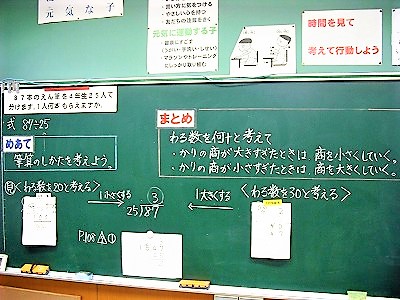 元気な子
言い方に気をつける
やさしい心を持つ
元気に運動する子
時間を見て
考えて行動しよう
87本のえん筆を1年生25人で
分けます。1人何本もらえますか。
式 87÷25
めあて
筆算のしかたを考えよう。
まとめ
わる数を何十と考えて
・かりの商が大きすぎたときは、商を小さくしていく。
・かりの商が小さすぎたときは、商を大きくしていく。
見 <わる数を20と考える>
1小さくする
3
25)87
1大きくする
<わる数を30と考える>
P.108 ①